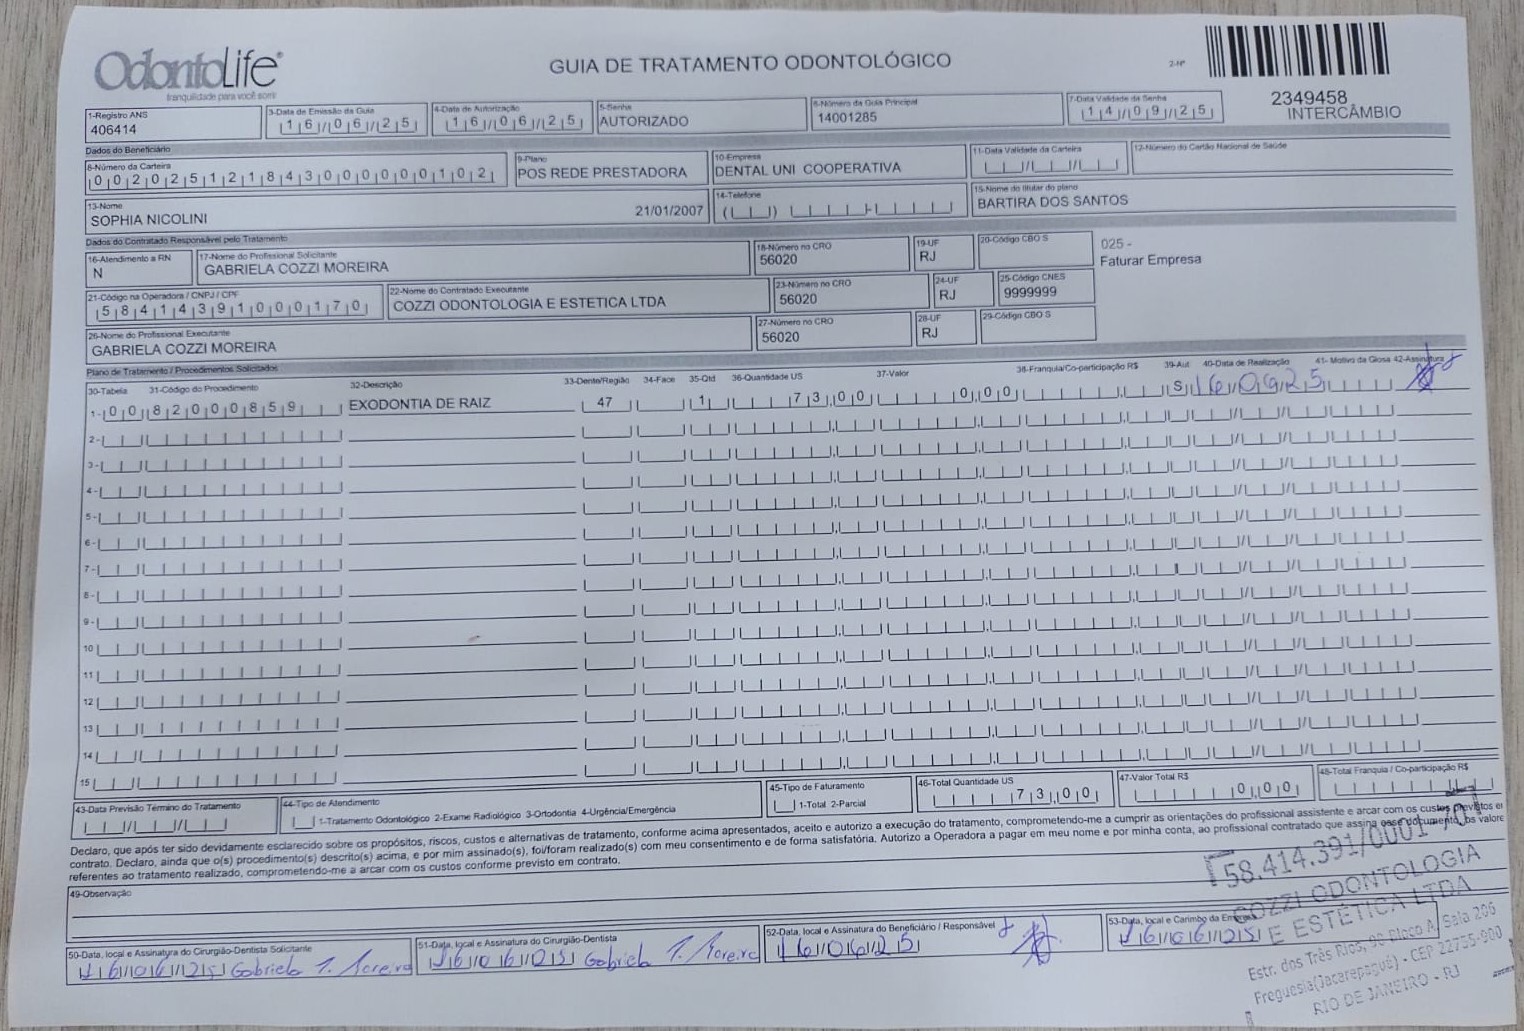 OdontoLife®
tranquilidade para você sorrir
GUIA DE TRATAMENTO ODONTOLÓGICO
2-Nº
2349458
INTERCÂMBIO
1-Registro ANS
406414
3-Data de Emissão da Guia
16/06/25
4-Data de Autorização
16/06/25
5-Senha
AUTORIZADO
6-Número da Guia Principal
14001285
7-Data Validade da Senha
14/09/25
Dados do Beneficiário
8-Número da Carteira
00202512184300000102
9-Plano
POS REDE PRESTADORA
10-Empresa
DENTAL UNI COOPERATIVA
11-Data Validade da Carteira
12-Número do Cartão Nacional de Saúde
13-Nome
SOPHIA NICOLINI 21/01/2007
14-Telefone
15-Nome do titular do plano
BARTIRA DOS SANTOS
Dados do Contratado Responsável pelo Tratamento
16-Atendimento a RN
N
17-Nome do Profissional Solicitante
GABRIELA COZZI MOREIRA
18-Número no CRO
56020
19-UF
RJ
20-Código CBO S
025 -
Faturar Empresa
21-Código na Operadora / CNPJ / CPF
58414391000170
22-Nome do Contratado Executante
COZZI ODONTOLOGIA E ESTETICA LTDA
23-Número no CRO
56020
24-UF
RJ
25-Código CNES
9999999
26-Nome do Profissional Executante
GABRIELA COZZI MOREIRA
27-Número no CRO
56020
28-UF
RJ
29-Código CBO S
Plano de Tratamento / Procedimentos Solicitados
30-Tabela 31-Código do Procedimento 32-Descrição 33-Dente/Região 34-Face 35-Qtd 36-Quantidade US 37-Valor 38-Franquia/Co-participação R$ 39-Aut 40-Data de Realização 41- Motivo da Glosa 42-Assinatura
1- 00 82000859 EXODONTIA DE RAIZ 47 1 73,00 0,00 S 16 06 25
2-
3-
4-
5-
6-
7-
8-
9-
10
11
12
13
14
15
43-Data Previsão Término do Tratamento
44-Tipo de Atendimento
1-Tratamento Odontológico 2-Exame Radiológico 3-Ortodontia 4-Urgência/Emergência
45-Tipo de Faturamento
1-Total 2-Parcial
46-Total Quantidade US
73,00
47-Valor Total R$
0,00
48-Total Franquia / Co-participação R$
Declaro, que após ter sido devidamente esclarecido sobre os propósitos, riscos, custos e alternativas de tratamento, conforme acima apresentados, aceito e autorizo a execução do tratamento, comprometendo-me a cumprir as orientações do profissional assistente e arcar com os custos previstos em
contrato. Declaro, ainda que o(s) procedimento(s) descrito(s) acima, e por mim assinado(s), foi/foram realizado(s) com meu consentimento e de forma satisfatória. Autorizo a Operadora a pagar em meu nome e por minha conta, ao profissional contratado que assina esse documento, os valore
referentes ao tratamento realizado, comprometendo-me a arcar com os custos conforme previsto em contrato.
49-Observação
50-Data, local e Assinatura do Cirurgião-Dentista Solicitante
16/06/25 Gabriela T. Moreira
51-Data, local e Assinatura do Cirurgião-Dentista
16/06/25 Gabriela T. Moreira
52-Data, local e Assinatura do Beneficiário / Responsável
16/06/25
53-Data, local e Carimbo da Empresa
16/06/25
58.414.391/0001-
COZZI ODONTOLOGIA
E ESTÉTICA LTDA
Estr. dos Três Rios, 90 Bloco A, Sala 206
Freguesia(Jacarepaguá) - CEP 22755-900
RIO DE JANEIRO - RJ